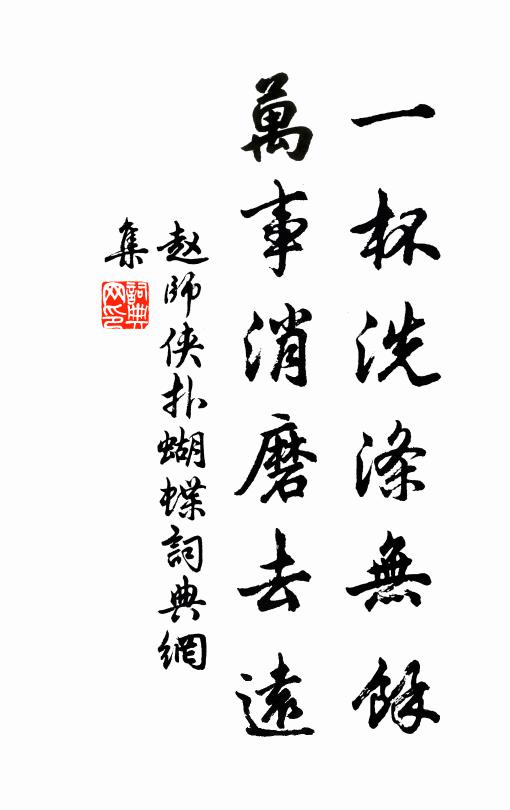 一杯洗滌無餘
萬事消磨去遠
赵師侠扑蝴蝶詞典網
集
詞典
网印